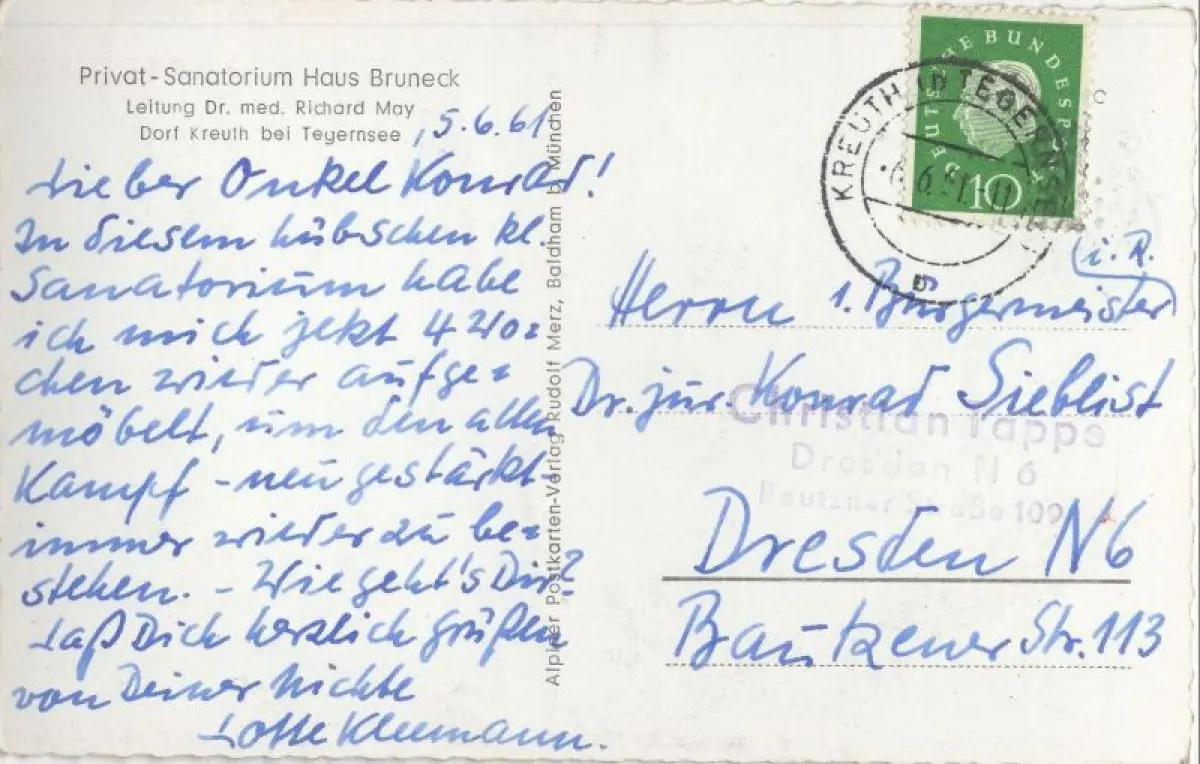 Privat-Sanatorium Haus Bruneck
Leitung Dr. med. Richard May
Dorf Kreuth bei Tegernsee
5.6.61
Lieber Onkel Konrad!
In diesem hübschen kl.
Sanatorium habe
ich mich jetzt 4 Wo=
chen wieder aufge=
möbelt, um den alten
Kampf - neu gestärkt -
immer wieder zu be-
stehen. - Wie geht's Dir?
Laß Dich herzlich grüßen
von Deiner Nichte
Lotte Kleemann.
Alpiner Postkarten-Verlag Rudolf Merz, Baldham b. München
DEUTSCHE BUNDESPOST
10
KREUTH TEGERNSEE
b
i. R.
Herrn 1. Bürgermeister
Dr. jur. Konrad Sieblist
Christian Tappe
Dresden N 6
Bautzner Straße 109
Dresden N6
Bautzener Str. 113